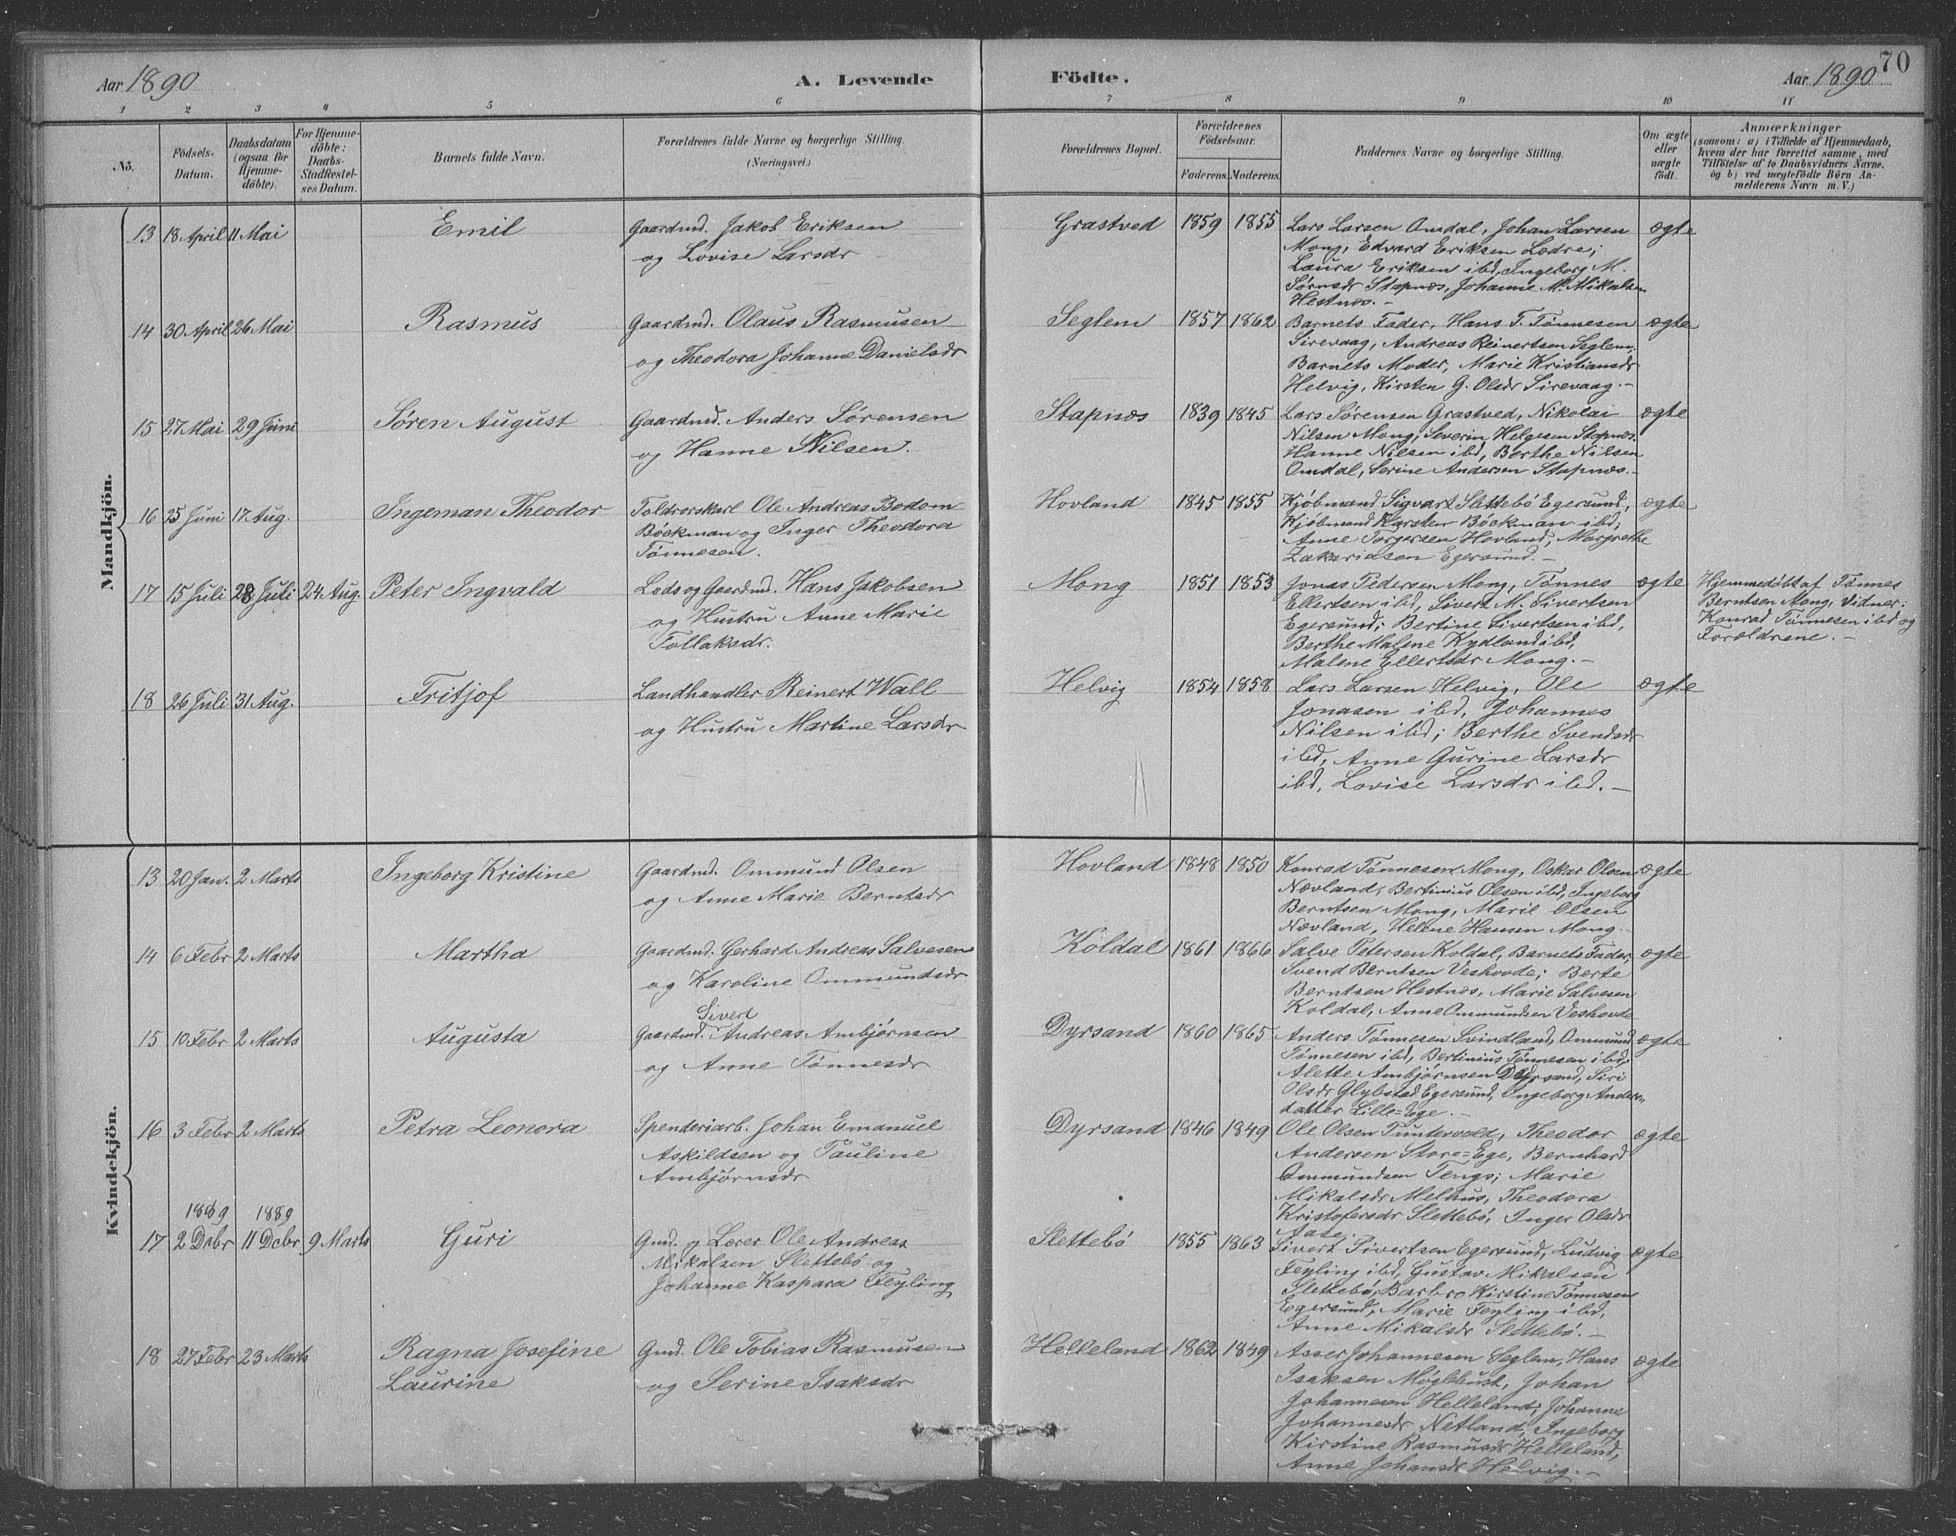 Aar 1890
A. Levende
Födte.
Aar 1890
70
1 2 3 4 5 6 7 8 9 10 11
No.
Födsels-
Datum.
Daabsdatum
(ogsaa for
Hjemme-
döbte).
For Hjemme-
döbte:
Daabs-
Stadfæstel-
ses Datum.
Barnets fulde Navn.
Forældrenes fulde Navne og borgerlige Stilling.
(Næringsvei.)
Forældrenes Bopæl.
Forældrenes
Födselsaar.
Faderens. Moderens.
Faddernes Navne og borgerlige Stilling.
Om ægte
eller
uægte
födt.
Anmærkninger
(saasom: a) i Tilfælde af Hjemmedaab,
hvem der har forrettet samme, med
Tilföielse af to Daabsvidners Navne,
og b) ved uægtefödte Börn An-
melderens Navn m. V.)
Mandkjön.
13 18 April 11 Mai
Emil
Gaardmd. Jakob Eriksen
og Lovise Larsdr
Grastved 1859 1855
Lars Larsen Omdal, Johan Larsen
Mong, Edvard Eriksen Lædre;
Laura Eriksen ibd, Ingeborg M.
Sørnsdr Stapnæs, Johanne M. Mikalsen
Hestnæs.-
ægte
14 30 April 26 Mai
Rasmus
Gaardmd. Olaus Rasmusen
og Theodora Johanne Danielsdr
Seglem 1857 1862
Barnets Fader, Hans T. Tønnesen
Sirevaag, Andreas Reinertsen Seglem;
Barnets Moder, Marie Kristiansdr
Helvig, Kirsten G. Olsdr Sirevaag.-
ægte
15 27 Mai 29 Juni
Søren August
Gaardmd. Anders Sørensen
og Hanne Nilsen.
Stapnæs 1839 1845
Lars Sørensen Grastved, Nikolai
Nilsen Mong, Severin Helgesen Stapnæs.
Hanne Nilsen ibd, Berthe Nilsen
Omdal, Serine Andersen Stapnæs.-
ægte
16 25 Juni 17 Aug.
Ingeman Theodor
Toldrorskarl Ole Andreas Bodom
Böckman og Inger Theodora
Tønnesen.
Hovland 1845 1855
Kjöbmand Sigvart Slettebö Egersund,
Kjöbmand Karsten Böckman ibd;
Anne Torgersen Hovland, Margrethe
Zakariasen Egersund.-
ægte
17 15 Juli 28 Juli 24 Aug.
Peter Ingvald
Lods og Gaardmd. Hans Jakobsen
og Hustru Anne Marie
Tollaksdr.
Mong 1851 1853
Jonas Pedersen Mong, Tønnes
Ellertsen ibd, Sivert M. Sivertsen
Egersund; Bertine Sivertsen ibd,
Berthe Malene Kydland ibd,
Malene Ellertsdr Mong.-
ægte
Hjemmedöbt af Tønnes
Berntsen Mong, Vidner:
Konrad Tønnesen ibd og
Forældrene.-
18 26 Juli 31 Aug.
Fritjof
Landhandler Reinert Wall
og Hustru Martine Larsdr
Helvig 1854 1858
Lars Larsen Helvig, Ole
Jonasen ibd, Johannes
Nilsen ibd; Berthe Svendsdr
ibd, Anne Gurine Larsdr
ibd, Lovise Larsdr ibd.-
ægte
Kvindekjön.
13 20 Jan. 2 Marts
Ingeborg Kristine
Gaardmd. Ommund Olsen
og Anne Marie Berntsdr
Hovland 1848 1850
Konrad Tønnesen Mong, Oskar Olsen
Nævland, Bertinius Olsen ibd, Ingeborg
Berntsen Mong, Marie Olsen
Nævland, Helene Hansen Mong.
ægte
14 6 Febr 2 Marts
Martha
Gaardmd. Gerhard Andreas Salvesen
og Karoline Ommundsdr
Koldal 1861 1866
Salve Petersen Koldal, Barnets Fader,
Svend Berntsen Veshovde; Berte
Berntsen Hestnæs, Marie Salvesen
Koldal, Anne Ommundsen Veshovde
ægte
15 10 Febr 2 Marts
Augusta
Sivert
Gaardmd. Andreas Ambjørnsen
og Anne Tønnesdr
Dyrsand 1860 1865
Anders Tønnesen Svindland, Ommund
Tønnesen ibd, Bertinius Tønnesen ibd;
Alette Ambjørnsen Dyrsand, Siri
Olsdr Glybstad Egersund, Ingeborg Anders-
datter Lille-Ege.-
ægte
16 3 Febr 2 Marts
Petra Leonora
Spenderiarb. Johan Emanuel
Askildsen og Pauline
Ambjørnsdr
Dyrsand 1846 1849
Ole Olsen Tuntervold, Theodor
Andersen Store-Ege, Bernhard
Ommundsen Tengs; Marie
Mikalsdr Melhus, Theodora
Kristofersdr Slettebö, Inger Olsdr
Aase.
ægte
1889 1889
17 2 Decbr 11 Decbr 9 Marts
Guri
Gmd. og Lærer Ole Andreas
Mikalsen Slettebö og
Johanne Kaspara Feyling
Slettebö 1855 1863
Sivert Sivertsen Egersund, Ludvig
Feyling ibd, Gustav Mikalsen
Slettebö; Barbro Kirstine Tønnesen
Egersund, Marie Feyling ibd,
Anne Mikalsdr Slettebö.-
ægte
18 27 Febr 23 Marts
Ragna Josefine
Laurine
Gmd. Ole Tobias Rasmusen
og Serine Isaksdr
Helleland 1862 1849
Asser Johannesen Seglem, Hans
Isaksen Møglebust, Johan
Johannesen Helleland; Johanne
Johannesdr Netland, Ingeborg
Kirstine Rasmusdr Helleland,
Anne Johansdr Helvig.-
ægte